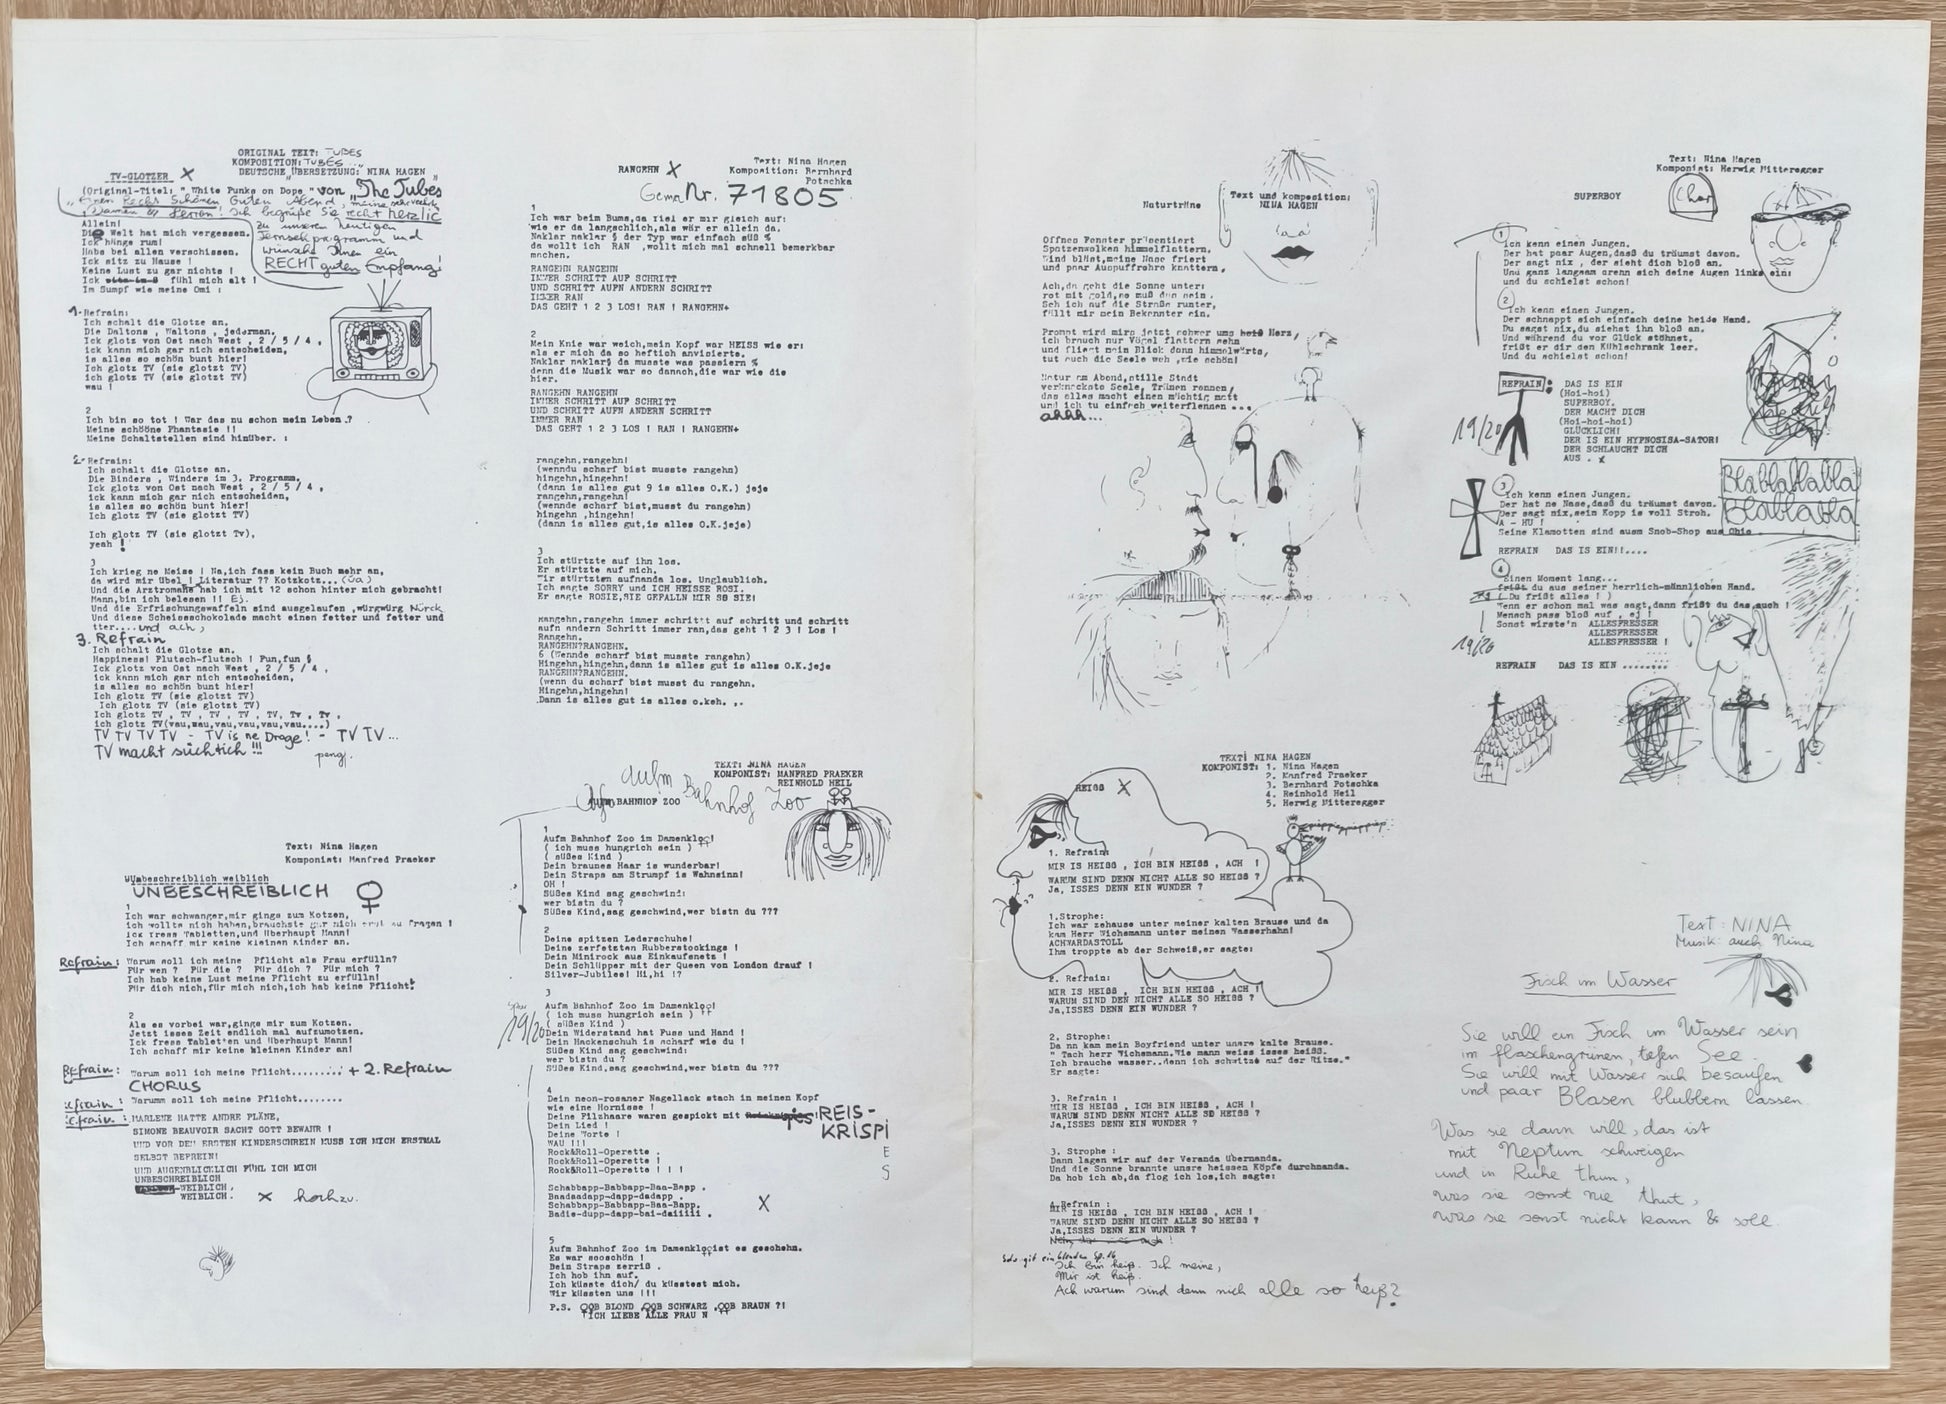 ORIGINAL TEXT: TUBES
KOMPOSITION: TUBES ...
DEUTSCHE "ÜBERSETZUNG:" NINA HAGEN "
TV-GLOTZER X
(Original-Titel: " White Punks on Dope " von "The Tubes
"Einen Recht Schönen Guten Abend, meine sehr verehrten
Damen & Herren! Ich begrüße Sie recht herzlic
zu unserem heutigen
Fernsehprogramm und
wünsche Ihnen ein
RECHT guten Empfang!
Allein!
Die Welt hat mich vergessen.
Ick hänge rum!
Habs bei allen verschissen.
Ick sitz zu Hause !
Keine Lust zu gar nichts !
Ick fühl mich alt !
Im Sumpf wie meine Omi :
1. Refrain:
Ich schalt die Glotze an.
Die Daltons , Waltons , jederman.
Ick glotz von Ost nach West , 2 / 5 / 4 ,
ick kann mich gar nich entscheiden,
is alles so schön bunt hier!
Ich glotz TV (sie glotzt TV)
ich glotz TV (sie glotzt TV)
wau !
2
Ich bin so tot ! War das nu schon mein Leben.?
Meine schööne Phantasie !!
Meine Schaltstellen sind hinüber. :
2. Refrain:
Ich schalt die Glotze an.
Die Binders , Winders im 3. Programm,
Ick glotz von Ost nach West , 2 / 5 / 4 ,
ick kann mich gar nich entscheiden,
is alles so schön bunt hier!
Ich glotz TV (sie glotzt TV)
Ich glotz TV (sie glotzt Tv),
yeah !
3
Ich krieg ne Meise ! Na,ich fass kein Buch mehr an,
da wird mir Übel ! Literatur ?? Kotzkotz... (üa)
Und die Arztromane hab ich mit 12 schon hinter mich gebracht!
Mann,bin ich belesen !! Ej.
Und die Erfrischungswaffeln sind ausgelaufen ,würgwürg Nürck
Und diese Scheissschokolade macht einen fetter und fetter und
tter.....und ach,
3. Refrain
Ich schalt die Glotze an.
Happiness! Flutsch-flutsch ! Fun,fun §
Ick glotz von Ost nach West , 2 / 5 / 4 ,
ick kann mich gar nich entscheiden,
is alles so schön bunt hier!
Ich glotz TV (sie glotzt TV)
Ich glotz TV (sie glotzt TV)
Ich glotz TV , TV , TV , TV , TV, Tv , Tv ,
ich glotz TV(vau,wau,vau,vau,vau,vau....)
TV TV TV TV - TV is ne Droge! - TV TV...
TV macht süchtich !!!
peng!
Text: Nina Hagen
Komponist: Manfred Praeker
WUnbeschreiblich weiblich
UNBESCHREIBLICH ♀
1
Ich war schwanger,mir gings zum Kotzen,
ich wollts nich haben,brauchste gar nich erst zu fragen !
Ick fress Tabletten,und überhaupt Mann!
Ich schaff mir keine kleinen Kinder an.
Refrain: Warum soll ich meine Pflicht als Frau erfülln?
Für wen ? Für die ? Für dich ? Für mich ?
Ich hab keine Lust meine Pflicht zu erfülln!
Für dich nich,für mich nich,ich hab keine Pflicht!
2
Als es vorbei war,gings mir zum Kotzen.
Jetzt isses Zeit endlich mal aufzumotzen.
Ick fress Tabletten und überhaupt Mann!
Ich schaff mir keine kleinen Kinder an!
Refrain: Warum soll ich meine Pflicht......... + 2. Refrain
CHORUS
efrain: Warumm soll ich meine Pflicht........
efrain: MARLENE HATTE ANDRE PLÄNE,
SIMONE BEAUVOIR SACHT GOTT BEWAHR !
UND VOR DEM ERSTEN KINDERSCHREIN MUSS ICH MICH ERSTMAL
SELBST BEFREIN!
UND AUGENBLICKLICH FÜHL ICH MICH
UNBESCHREIBLICH
WEIBLICH.
WEIBLICH. x hoch zu.
RANGEHN X
Text: Nina Hagen
Komposition: Bernhard
Potschka
Gema Nr. 71805
1
Ich war beim Bums,da fiel er mir gleich auf:
wie er da langschlich,als wär er allein da.
Naklar naklar § der Typ war einfach süß %
da wollt ich RAN ,wollt mich mal schnell bemerkbar
machen.
RANGEHN RANGEHN
IMMER SCHRITT AUF SCHRITT
UND SCHRITT AUFN ANDERN SCHRITT
IMMER RAN
DAS GEHT 1 2 3 LOS! RAN ! RANGEHN+
2
Mein Knie war weich,mein Kopf war HEISS wie er:
als er mich da so heftich anvisierte.
Naklar naklar§ da musste was passiern %
denn die Musik war so danach,die war wie die
hier.
RANGEHN RANGEHN
IMMER SCHRITT AUF SCHRITT
UND SCHRITT AUFN ANDERN SCHRITT
IMMER RAN
DAS GEHT 1 2 3 LOS ! RAN ! RANGEHN+
rangehn,rangehn!
(wenndu scharf bist musste rangehn)
hingehn,hingehn!
(dann is alles gut 9 is alles O.K.) jeje
rangehn,rangehn!
(wennde scharf bist,musst du rangehn)
hingehn ,hingehn!
(dann is alles gut,is alles O.K.jeje)
3
Ich stürtzte auf ihn los.
Er stürtzte auf mich.
Wir stürtzten aufnanda los. Unglaublich.
Ich sagte SORRY und ICH HEISSE ROSI.
Er sagte ROSIE,SIE GEFALLN MIR SO SIE!
Rangehn,rangehn immer schritt auf schritt und schritt
aufn andern Schritt immer ran,das geht 1 2 3 ! Los !
Rangehn.
RANGEHN?RANGEHN.
6 (Wennde scharf bist musste rangehn)
Hingehn,hingehn,dann is alles gut is alles O.K.jeje
RANGEHN?RANGEHN.
(wenn du scharf bist musst du rangehn.
Hingehn,hingehn!
Dann is alles gut is alles o.keh. ,.
TEXT: NINA HAGEN
KOMPONIST: MANFRED PRAEKER
REINHOLD HEIL
Aufm Bahnhof Zoo
Aufm BAHNHOF ZOO
1
Aufm Bahnhof Zoo im Damenkloo!
( ich muss hungrich sein )
( süßes Kind )
Dein braunes Haar is wunderbar!
Dein Straps am Strumpf is Wahnsinn!
OH !
Süßes Kind sag geschwind:
wer bistn du ?
Süßes Kind,sag geschwind,wer bistn du ???
2
Deine spitzen Lederschuhe!
Deine zerfetzten Rubberstockings !
Dein Minirock aus Einkaufsnets !
Dein Schlüpper mit der Queen von London drauf !
Silver-Jubilee! Hi,hi !?
3
Aufm Bahnhof Zoo im Damenkloo!
( ich muss hungrich sein )
( süßes Kind )
19/20
Dein Widerstand hat Fuss und Hand !
Dein Hackenschuh is scharf wie du !
Süßes Kind sag geschwind:
wer bistn du ?
Süßes Kind,sag geschwind,wer bistn du ???
4
Dein neon-rosaner Nagellack stach in meinen Kopf
wie eine Hornisse !
Deine Filzhaare waren gespickt mit REIS-
KRISPI
E
S
Dein Lied !
Deine Worte !
WAU !!!
Rock&Roll-Operette .
Rock&Roll-Operette !
Rock&Roll-Operette ! ! !
Schabbapp-Babbapp-Baa-Bapp .
Baadaadapp-dapp-dadapp .
Schabbapp-Babbapp-Baa-Bapp.
Badie-dupp-dapp-bai-daiiiii .
X
5
Aufm Bahnhof Zoo im Damenklooist es geschehn.
Es war sooschön !
Dein Straps zerriß .
Ich hob ihn auf.
Ich küsste dich/ du küsstest mich.
Wir küssten uns !!!
P.S. OOB BLOND ,OOB SCHWARZ ,OOB BRAUN ?!
ICH LIEBE ALLE FRAU N
Naturträne
Text und komposition:
NINA HAGEN
Offnes Fenster präsentiert
Spatzenwolken himmelflattern.
Wind bläst,meine Nase friert
und paar Auspuffrohre knattern,
Ach,da geht die Sonne unter:
rot mit gold,so muß das sein.
Seh ich auf die Straße runter,
fällt mir mein Bekannter ein.
Prompt wird mirs jetzt schwer ums Herz,
ich brauch nur Vögel flattern sehn
und fliegt mein Blick dann himmelwärts,
tut auch die Seele weh ,wie schön!
Natur am Abend,stille Stadt
verknackste Seele, Tränen rennen,
das alles macht einen mächtig matt
und ich tu einfach weiterflennen ...
ahhh...
Text: Nina Hagen
Komponist: Herwig Mitteregger
SUPERBOY
Chor
1
Ich kenn einen Jungen.
Der hat paar Augen,daß du träumst davon.
Der sagt nix , der sieht dich bloß an.
Und ganz langsam drehn sich deine Augen links ein:
und du schielst schon!
2
Ich kenn einen Jungen.
Der schnappt sich einfach deine heiße Hand.
Du sagst nix,du siehst ihn bloß an.
Und während du vor Glück stöhnst,
frißt er dir den Kühlschrank leer.
Und du schielst schon!
REFRAIN:
DAS IS EIN
(Hoi-hoi)
SUPERBOY.
DER MACHT DICH
(Hoi-hoi-hoi)
GLÜCKLICH!
DER IS EIN HYPNOSISA-SATOR!
DER SCHLAUCHT DICH
AUS . x
19/20
Blablablabla
Blablabla
3
Ich kenn einen Jungen.
Der hat ne Nase,daß du träumst davon.
Der sagt nix,sein Kopp is voll Stroh.
A - HU !
Seine Klamotten sind ausm Snob-Shop aus Ohio
REFRAIN DAS IS EIN!!....
4
Einen Moment lang...
frißt du aus seiner herrlich-männlichen Hand.
( Du frißt alles ! )
Wenn er schon mal was sagt,dann frißt du das auch !
Mensch pass bloß auf , ej !
Sonst wirste'n ALLESFRESSER
ALLESFRESSER
ALLESFRESSER !
19/20
REFRAIN DAS IS EIN ........
HEISS X
TEXT: NINA HAGEN
KOMPONIST: 1. Nina Hagen
2. Manfred Praeker
3. Bernhard Potschka
4. Reinhold Heil
5. Herwig Mitteregger
1. Refrain:
MIR IS HEISS , ICH BIN HEISS , ACH !
WARUM SIND DENN NICHT ALLE SO HEISS ?
Ja, ISSES DENN EIN WUNDER ?
1.Strophe:
Ich war zehause unter meiner kalten Brause und da
kam Herr Wichsmann unter meinen Wasserhahn!
ACHWARDASTOLL
Ihm troppte ab der Schweiß,er sagte:
2. Refrain:
MIR IS HEISS , ICH BIN HEISS , ACH !
WARUM SIND DEN NICHT ALLE SO HEISS ?
Ja,ISSES DENN EIN WUNDER ?
2. Strophe:
Da nn kam mein Boyfriend unter unsre kalte Brause.
" Tach herr Wichsmann.Wie mann weiss isses heiß.
Ich brauche wasser..denn ich schwitze auf der Ritze."
Er sagte:
3. Refrain :
MIR IS HEISS , ICH BIN HEISS, ACH !
WARUM SIND DENN NICHT ALLE SO HEISS ?
Ja,ISSES DENN EIN WUNDER ?
3. Strophe :
Dann lagen wir auf der Veranda übernanda.
Und die Sonne brannte unsre heissen Köpfe durchnanda.
Da hob ich ab,da flog ich los,ich sagte:
4.Refrain :
MIR IS HEISS , ICH BIN HEISS , ACH !
WARUM SIND DENN NICHT ALLE SO HEISS ?
Ja,ISSES DENN EIN WUNDER ?
Ich bin heiß. Ich meine,
Mir ist heiß.
Ach warum sind denn nich alle so heiß?
Text: NINA
Musik: auch Nina
Fisch im Wasser
Sie will ein Fisch im Wasser sein
im flaschengrünen, tiefen See.
Sie will mit Wasser sich besaufen
und paar Blasen blubbern lassen.
Was sie dann will, das ist
mit Neptun schweigen
und in Ruhe thun,
was sie sonst nie thut,
was sie sonst nicht kann & soll.